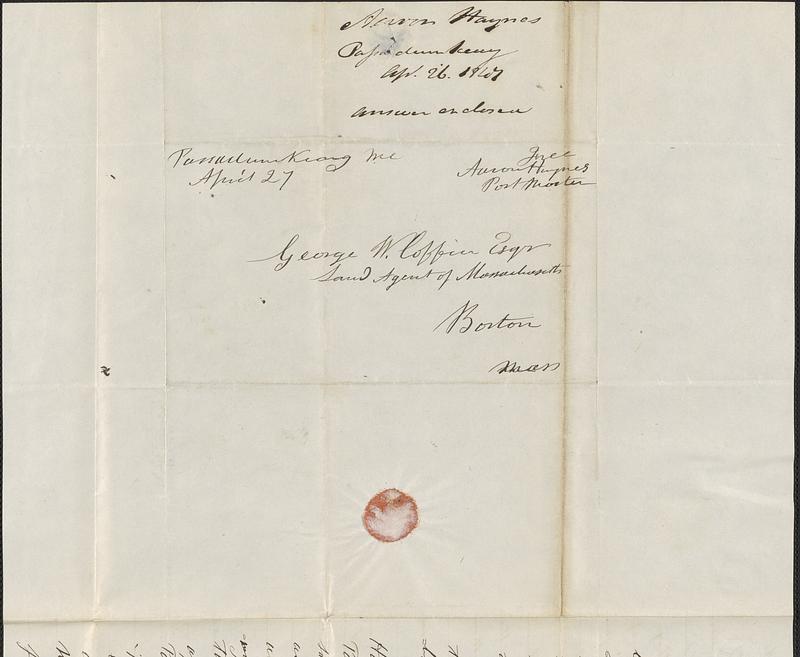 Aaron Haynes
Passadumkeag
Apl. 26. 1847
answer enclosed
Passadumkeag Me
April 27
Free
Aaron Haynes
Post Master
George W. Coffin Esqr
Land Agent of Massachusetts
Boston
Mass